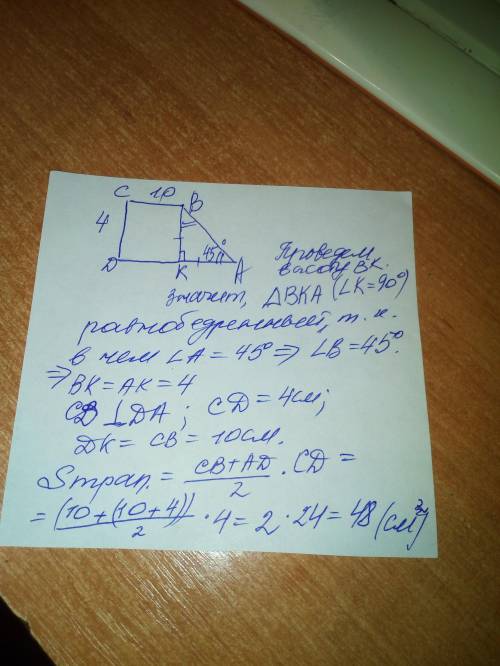 C 10 B
4
45°
D K A
Проведем
высоту BK.
значит, ΔBKA (∠K=90°)
равнобедренный, т.к.
в нем ∠A = 45° ⇒ ∠B = 45°.
⇒ BK = AK = 4
CD ⊥ DA; CD = 4см;
DK = CB = 10см.
Sтрап. = (CB+AD)/2 · CD =
= (10+(10+4))/2 · 4 = 2 · 24 = 48 (см²)